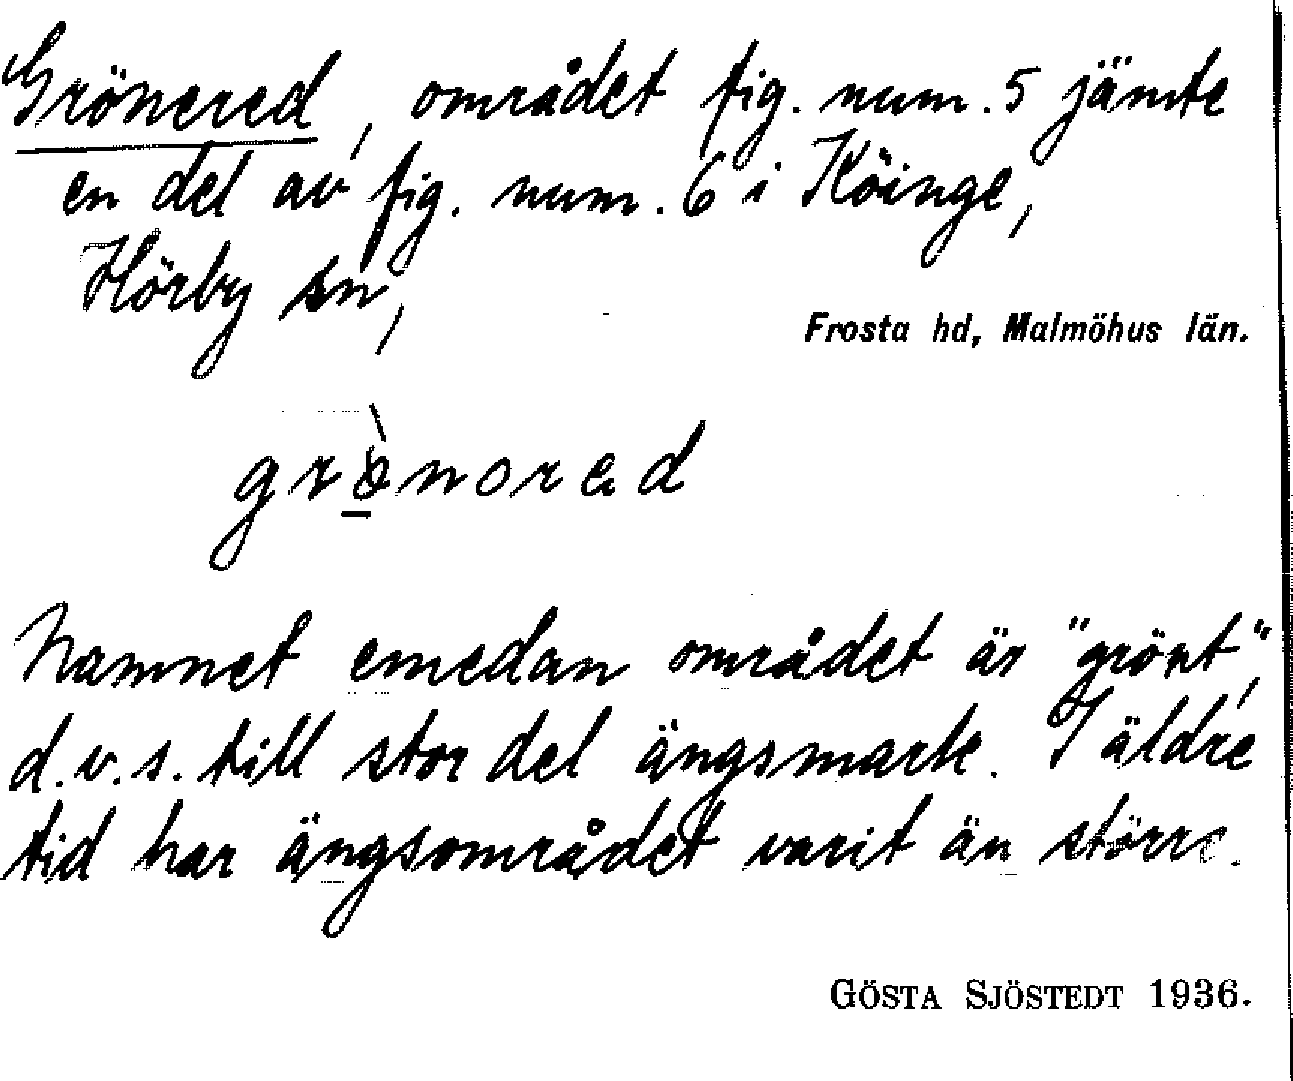 Grönered, området fig. num. 5 jämte
en del av fig. num. 6 i Köinge,
Hörby sn,
Frosta hd, Malmöhus län.
Namnet emedan området är "grönt",
d.v.s. till stor del ängsmark. I äldre
tid har ängsområdet varit än större.
GÖSTA SJÖSTEDT 1936.